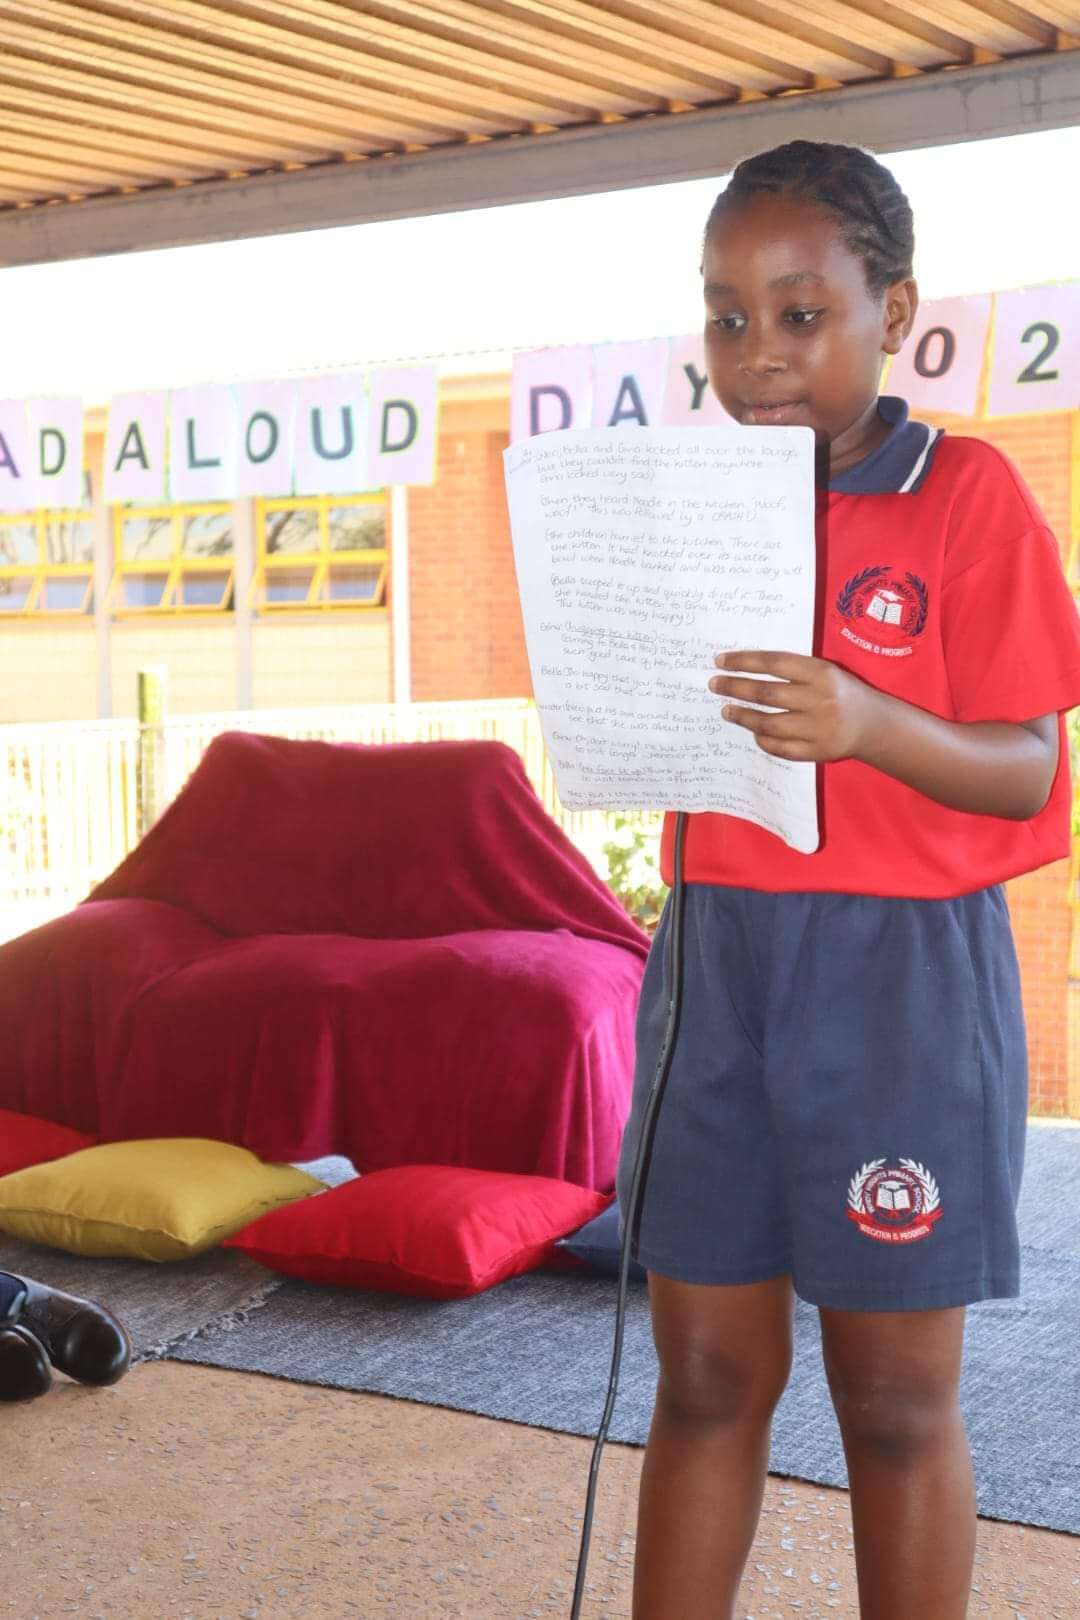 AD ALOUD DAY 02
Neo, Bella and Gina looked all over the lounge,
but they couldn't find the kitten anywhere.
Gina looked very sad)
(Then they heard Noodle in the kitchen. "Woof,
woof!" This was followed by a CRASH!)
(The children hurried to the kitchen. There sat
the kitten. It had knocked over its water
bowl when Noodle barked and was now very wet
(Bella scooped it up and quickly dried it. Then
she handed the kitten to Gina. "Purr, purr, purr."
The kitten was very happy!)
Gina: (hugging her kitten) Ginger! I missed you
(turning to Bella & Neo) Thank you
such good care of her, Bella
Bella: I'm happy that you found your
a bit sad that we won't see
(Neo put his arm around Bella's
see that she was about to cry)
Gina: Oh, don't worry! You are welcome
to visit Ginger whenever you like.
Bella: (her face lit up) Thank you! Neo and I
to visit tomorrow afternoon.
Neo: But I think Noodle should stay home.
HEIGHTS PRIMARY SCHOOL
EDUCATION IS PROGRESS
HEIGHTS PRIMARY SCHOOL
EDUCATION IS PROGRESS